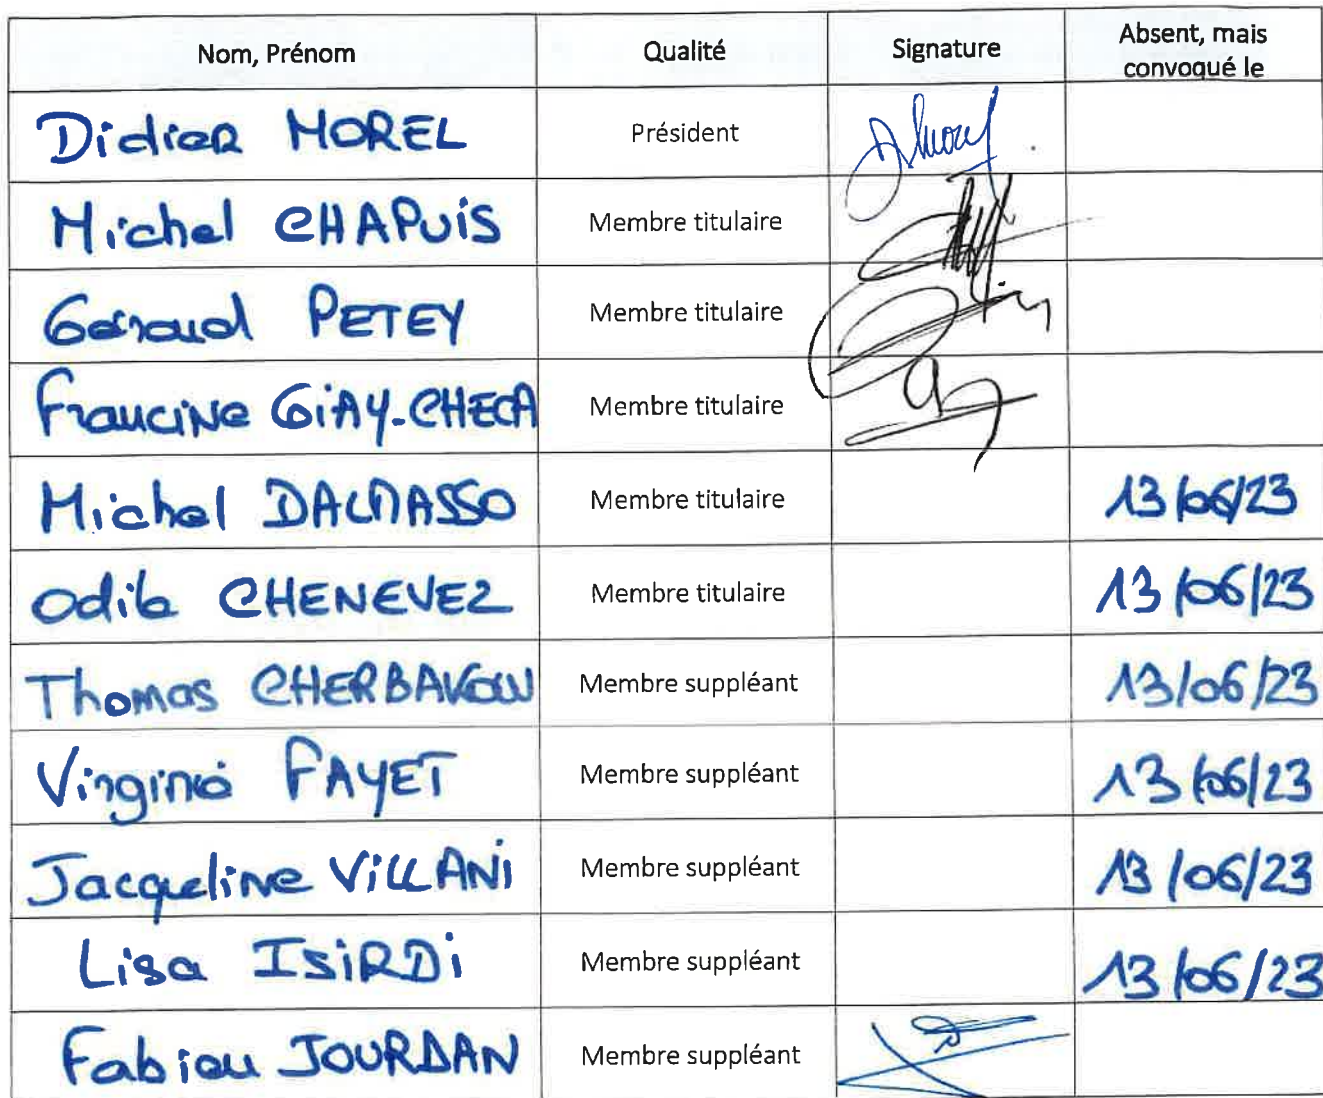 Nom, Prénom Qualité Signature Absent, mais convoqué le
Didier MOREL Président
Michel CHAPUIS Membre titulaire
Géraud PETEY Membre titulaire
Francine GIAY-CHECA Membre titulaire
Michel DALMASSO Membre titulaire 13/06/23
Odile CHENEVEZ Membre titulaire 13/06/23
Thomas Membre suppléant 13/06/23
Virginie FAYET Membre suppléant 13/06/23
Jacqueline VILLANI Membre suppléant 13/06/23
Lisa ISIRDI Membre suppléant 13/06/23
Fabien JOURDAN Membre suppléant